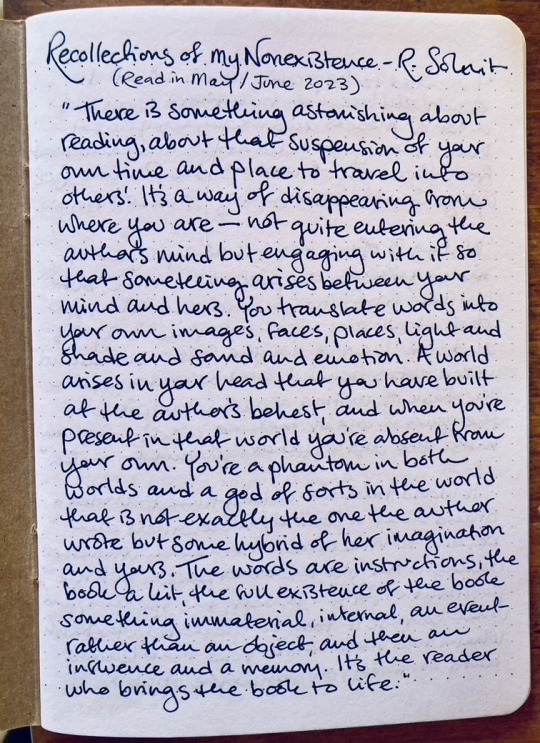 Recollections of my Nonexistence - R. Solnit
(Read in May/June 2023)
"There is something astonishing about
reading, about that suspension of your
own time and place to travel into
others'. It's a way of disappearing from
where you are — not quite entering the
author's mind but engaging with it so
that something arises between your
mind and hers. You translate words into
your own images, faces, places, light and
shade and sound and emotion. A world
arises in your head that you have built
at the author's behest, and when you're
present in that world you're absent from
your own. You're a phantom in both
worlds and a god of sorts in the world
that is not exactly the one the author
wrote but some hybrid of her imagination
and yours. The words are instructions, the
book a kit, the full existence of the book
something immaterial, internal, an event
rather than an object, and then an
influence and a memory. It's the reader
who brings the book to life."